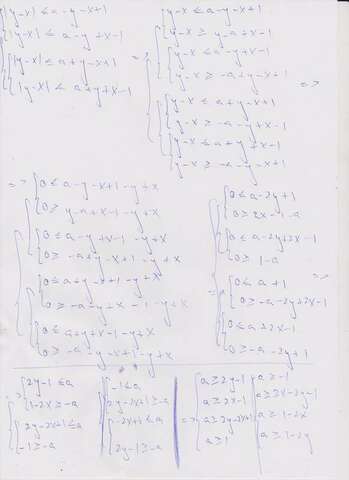 |y-x| ≤ a-y-x+1
|y-x| ≤ a-y+x-1
|y-x| ≤ a+y-x+1
|y-x| ≤ a+y+x-1
=>
y-x ≤ a-y-x+1
y-x ≥ y-a+x-1
y-x ≤ a-y+x-1
y-x ≥ -a+y-x+1
y-x ≤ a+y-x+1
y-x ≥ -a-y+x-1
y-x ≤ a+y+x-1
y-x ≥ -a-y-x+1
=>
=>
0 ≤ a-y-x+1-y+x
0 ≥ y-a+x-1-y+x
0 ≤ a-y+x-1-y+x
0 ≥ -a+y-x+1-y+x
0 ≤ a+y-x+1-y+x
0 ≥ -a-y+x-1-y+x
0 ≤ a+y+x-1-y+x
0 ≥ -a-y-x+1-y+x
0 ≤ a-2y+1
0 ≥ 2x-1-a
0 ≤ a-2y+2x-1
0 ≥ 1-a
0 ≤ a+1
0 ≥ -a-2y+2x-1
0 ≤ a+2x-1
0 ≥ -a-2y+1
=>
2y-1 ≤ a
1-2x ≥ -a
2y-2x+1 ≤ a
-1 ≥ -a
-1 ≤ a
2y-2x+1 ≥ -a
-2x+1 ≤ a
2y-1 ≥ -a
=>
a ≥ 2y-1
a ≥ 2x-1
a ≥ 2y-2x+1
a ≥ 1
a ≥ -1
a ≥ 2x-2y-1
a ≥ 1-2x
a ≥ 1-2y